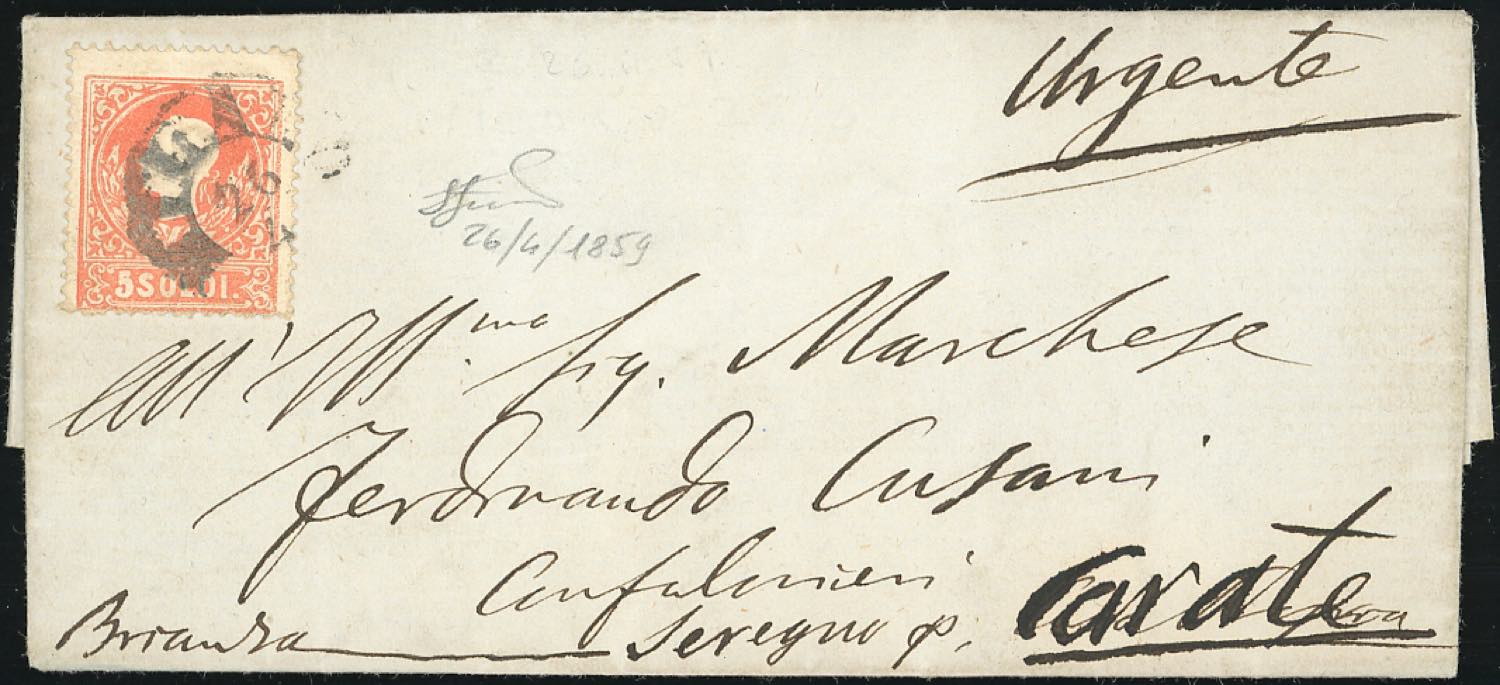 Urgente
5 SOLDI.
26
26/4/1859
All' Ill.mo Sig. Marchese
Ferdinando Cusani
Confalonieri
Brianza Seregno p. Carate